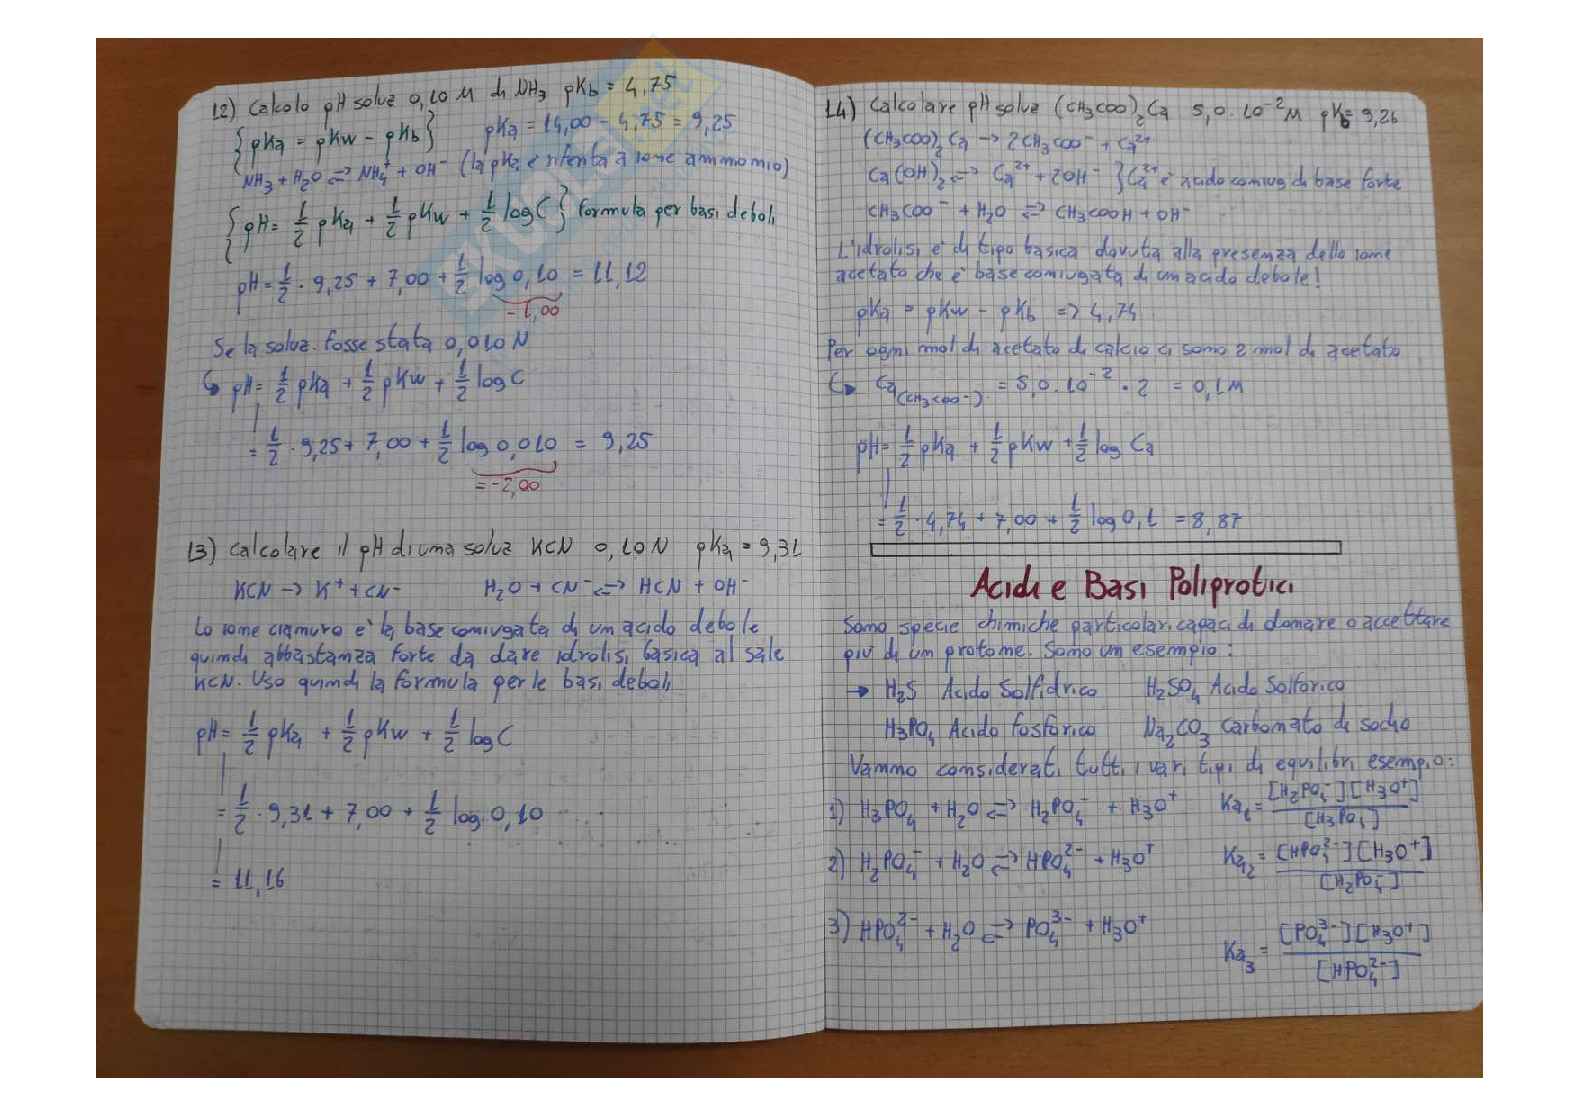 12) Calcolo pH soluz 0,10 M di NH₃ pKb = 4,75
{pKa = pKw - pKb} pKa = 14,00 - 4,75 = 9,25
NH₃ + H₂O ⇌ NH₄⁺ + OH⁻ (la pKa è riferita a ione ammonio)
{pH = 1/2 pKa + 1/2 pKw + 1/2 log C} formula per basi deboli
pH = 1/2 · 9,25 + 7,00 + 1/2 log 0,10 = 11,12
-1,00
Se la soluz. fosse stata 0,010 N
↳ pH = 1/2 pKa + 1/2 pKw + 1/2 log C
= 1/2 · 9,25 + 7,00 + 1/2 log 0,010 = 9,25
= -2,00
13) Calcolare il pH di una soluz KCN 0,10 N pKa = 9,31
KCN → K⁺ + CN⁻ H₂O + CN⁻ ⇌ HCN + OH⁻
Lo ione cianuro è la base coniugata di un acido debole
quindi abbastanza forte da dare idrolisi basica al sale
KCN. Uso quindi la formula per le basi deboli
pH = 1/2 pKa + 1/2 pKw + 1/2 log C
= 1/2 · 9,31 + 7,00 + 1/2 log 0,10
= 11,16
14) Calcolare pH soluz (CH₃COO)₂Ca 5,0·10⁻² M pKb = 9,26
(CH₃COO)₂Ca → 2CH₃COO⁻ + Ca²⁺
Ca(OH)₂ ⇌ Ca²⁺ + 2OH⁻ } Ca²⁺ è acido coniug di base forte
CH₃COO⁻ + H₂O ⇌ CH₃COOH + OH⁻
L'idrolisi è di tipo basica dovuta alla presenza dello ione
acetato che è base coniugata di un acido debole!
pKa = pKw - pKb => 4,74
Per ogni mol di acetato di calcio ci sono 2 mol di acetato
↳ Ca(CH₃COO⁻) = 5,0·10⁻² · 2 = 0,1 M
pH = 1/2 pKa + 1/2 pKw + 1/2 log Ca
= 1/2 · 4,74 + 7,00 + 1/2 log 0,1 = 8,87
Acidi e Basi Poliprotici
Sono specie chimiche particolari capaci di donare o accettare
più di un protone. Sono un esempio:
→ H₂S Acido Solfidrico H₂SO₄ Acido Solforico
H₃PO₄ Acido fosforico Na₂CO₃ carbonato di sodio
Vanno considerati tutti i vari tipi di equilibri esempio:
1) H₃PO₄ + H₂O ⇌ H₂PO₄⁻ + H₃O⁺ Ka₁ = [H₂PO₄⁻][H₃O⁺] / [H₃PO₄]
2) H₂PO₄⁻ + H₂O ⇌ HPO₄²⁻ + H₃O⁺ Ka₂ = [HPO₄²⁻][H₃O⁺] / [H₂PO₄⁻]
3) HPO₄²⁻ + H₂O ⇌ PO₄³⁻ + H₃O⁺ Ka₃ = [PO₄³⁻][H₃O⁺] / [HPO₄²⁻]